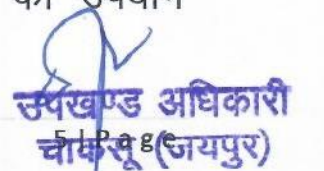 का उपयोग
उपखण्ड अधिकारी
5 | Page
चाकसू (जयपुर)